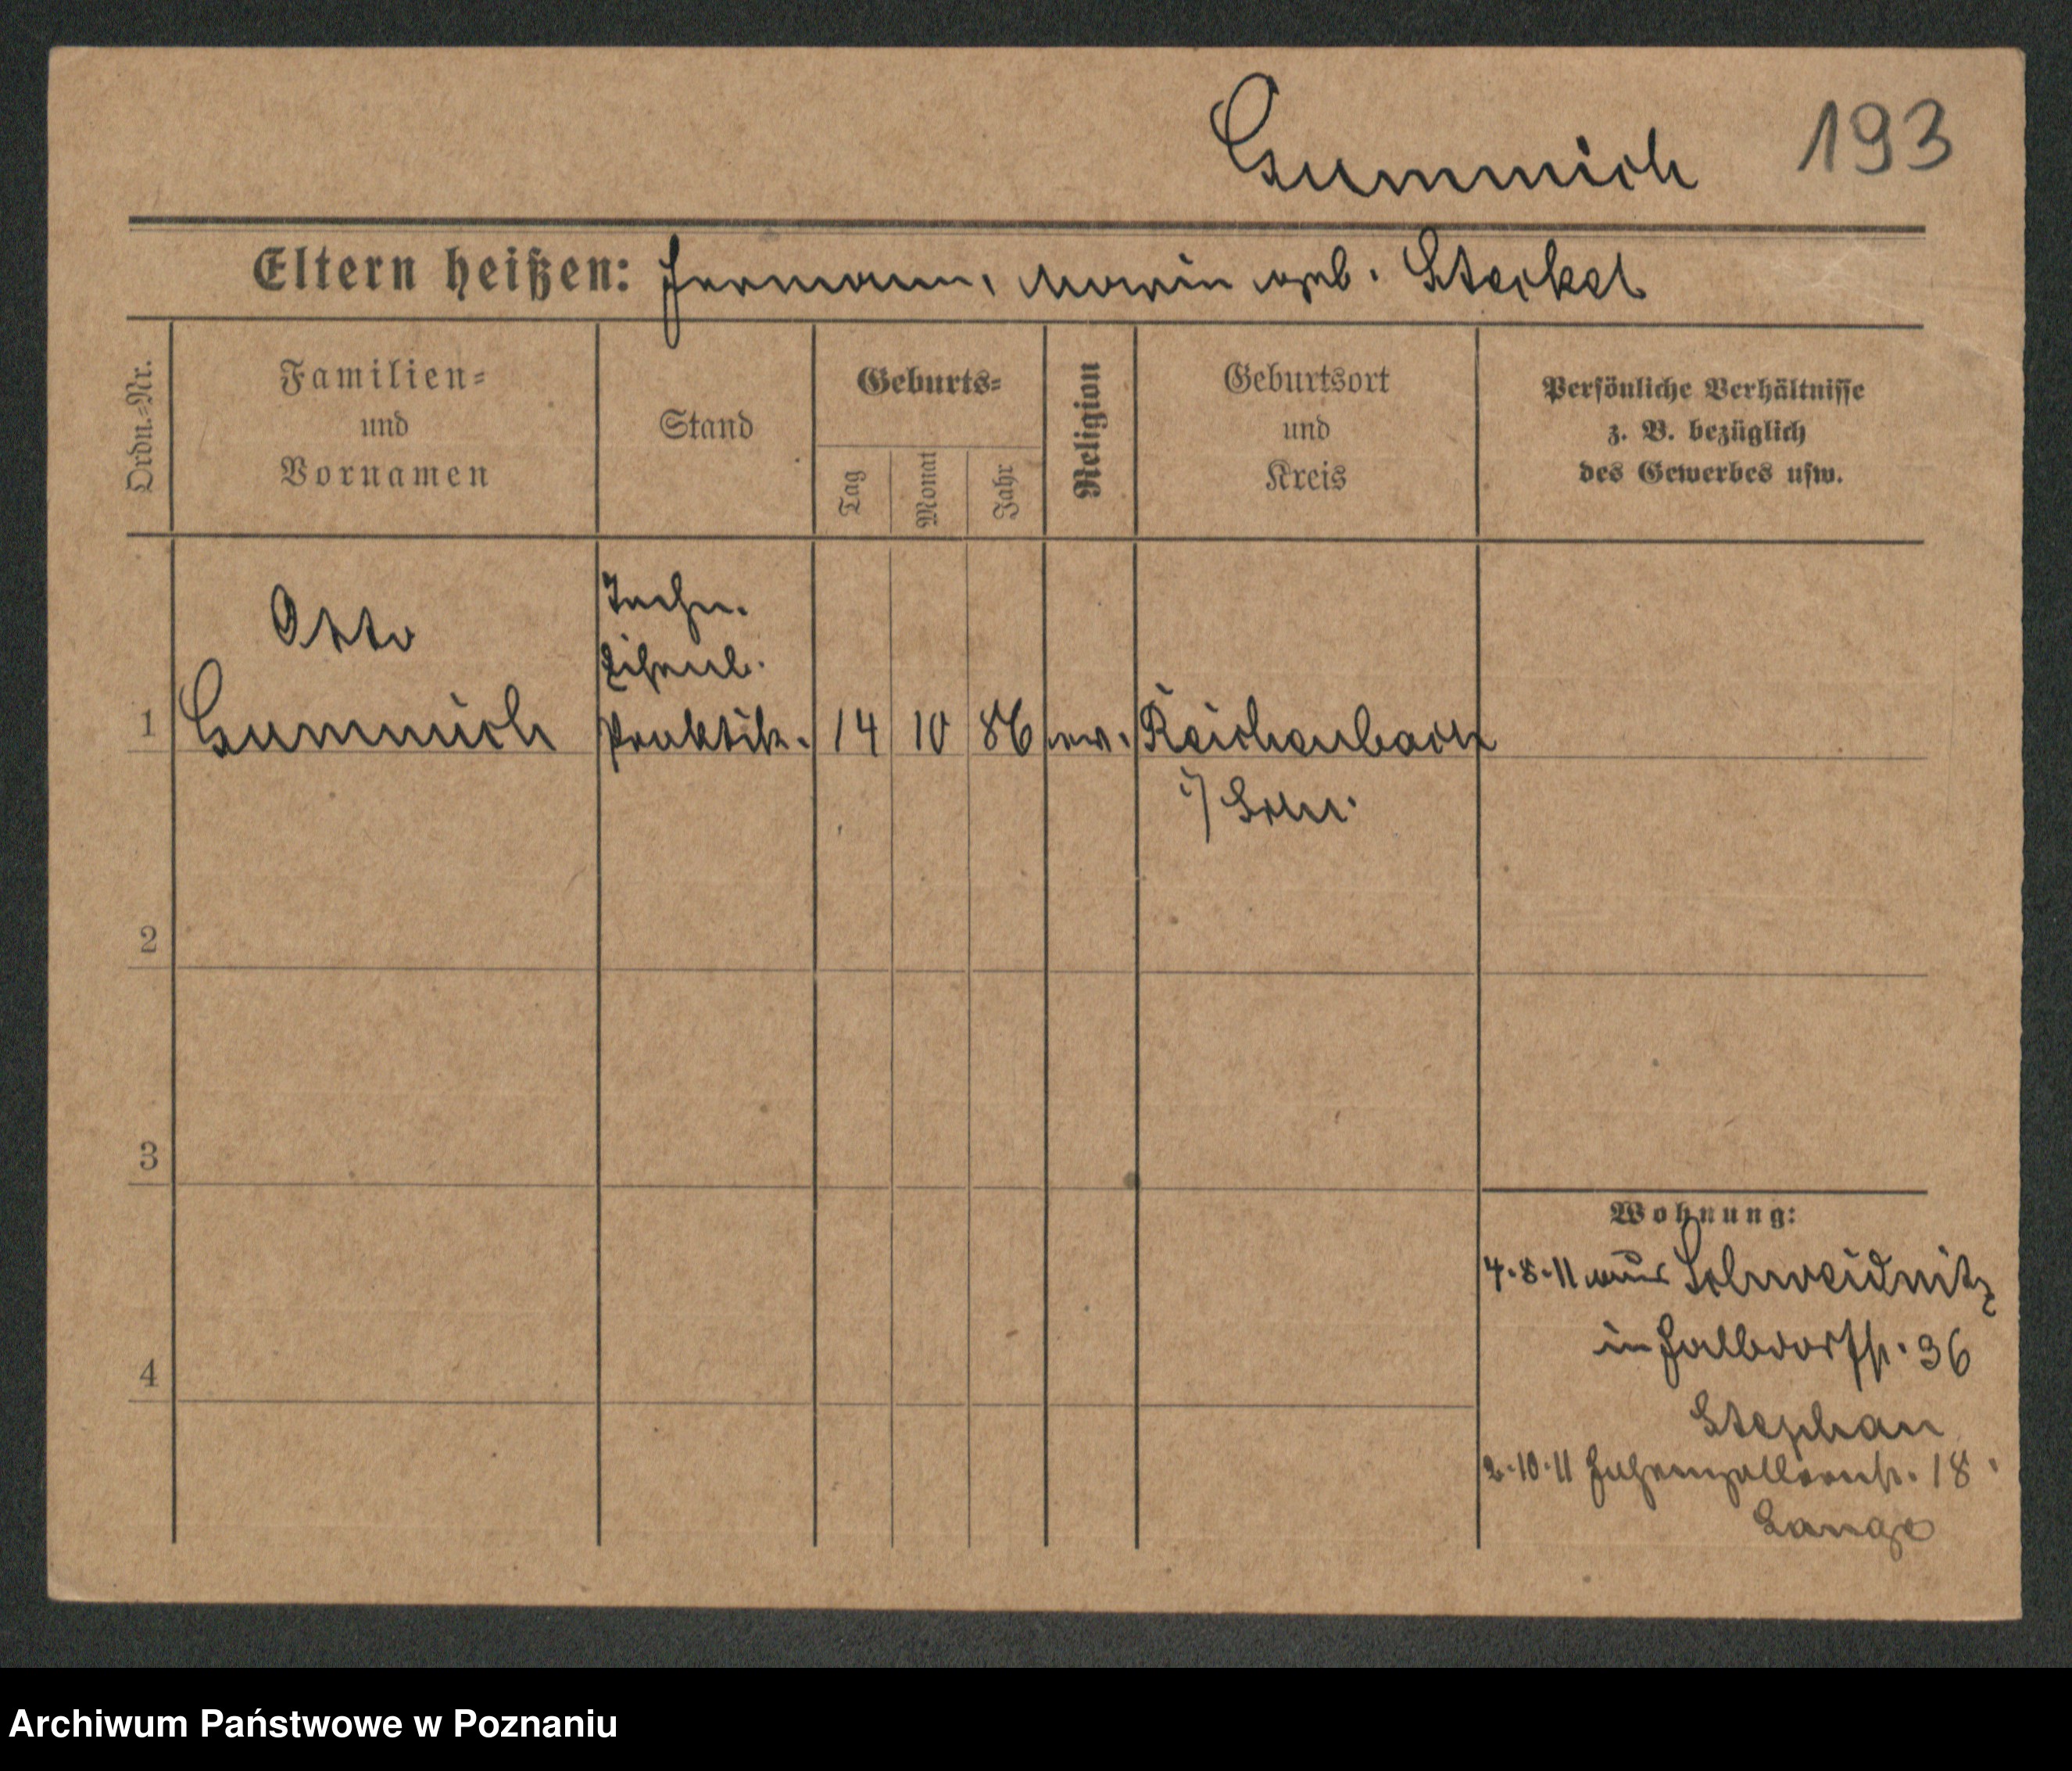 Gummich 193
Eltern heißen: Hermann, Marie geb. Steckel
Ordn.-Nr.
Familien=
und
Vornamen
Stand
Geburts=
Tag
Monat
Jahr
Religion
Geburtsort
und
Kreis
Persönliche Verhältnisse
z. B. bezüglich
des Gewerbes usw.
Otto Techn.
Eisenb.
1 Gummich Praktik. 14 10 86 ev. Reichenbach
i/ Schl.
2
3
4
Wohnung:
4.8.11 aus Schweidnitz
in 36
Stephan
2.10.11 Hohenzollernstr. 18
Lange
Archiwum Państwowe w Poznaniu